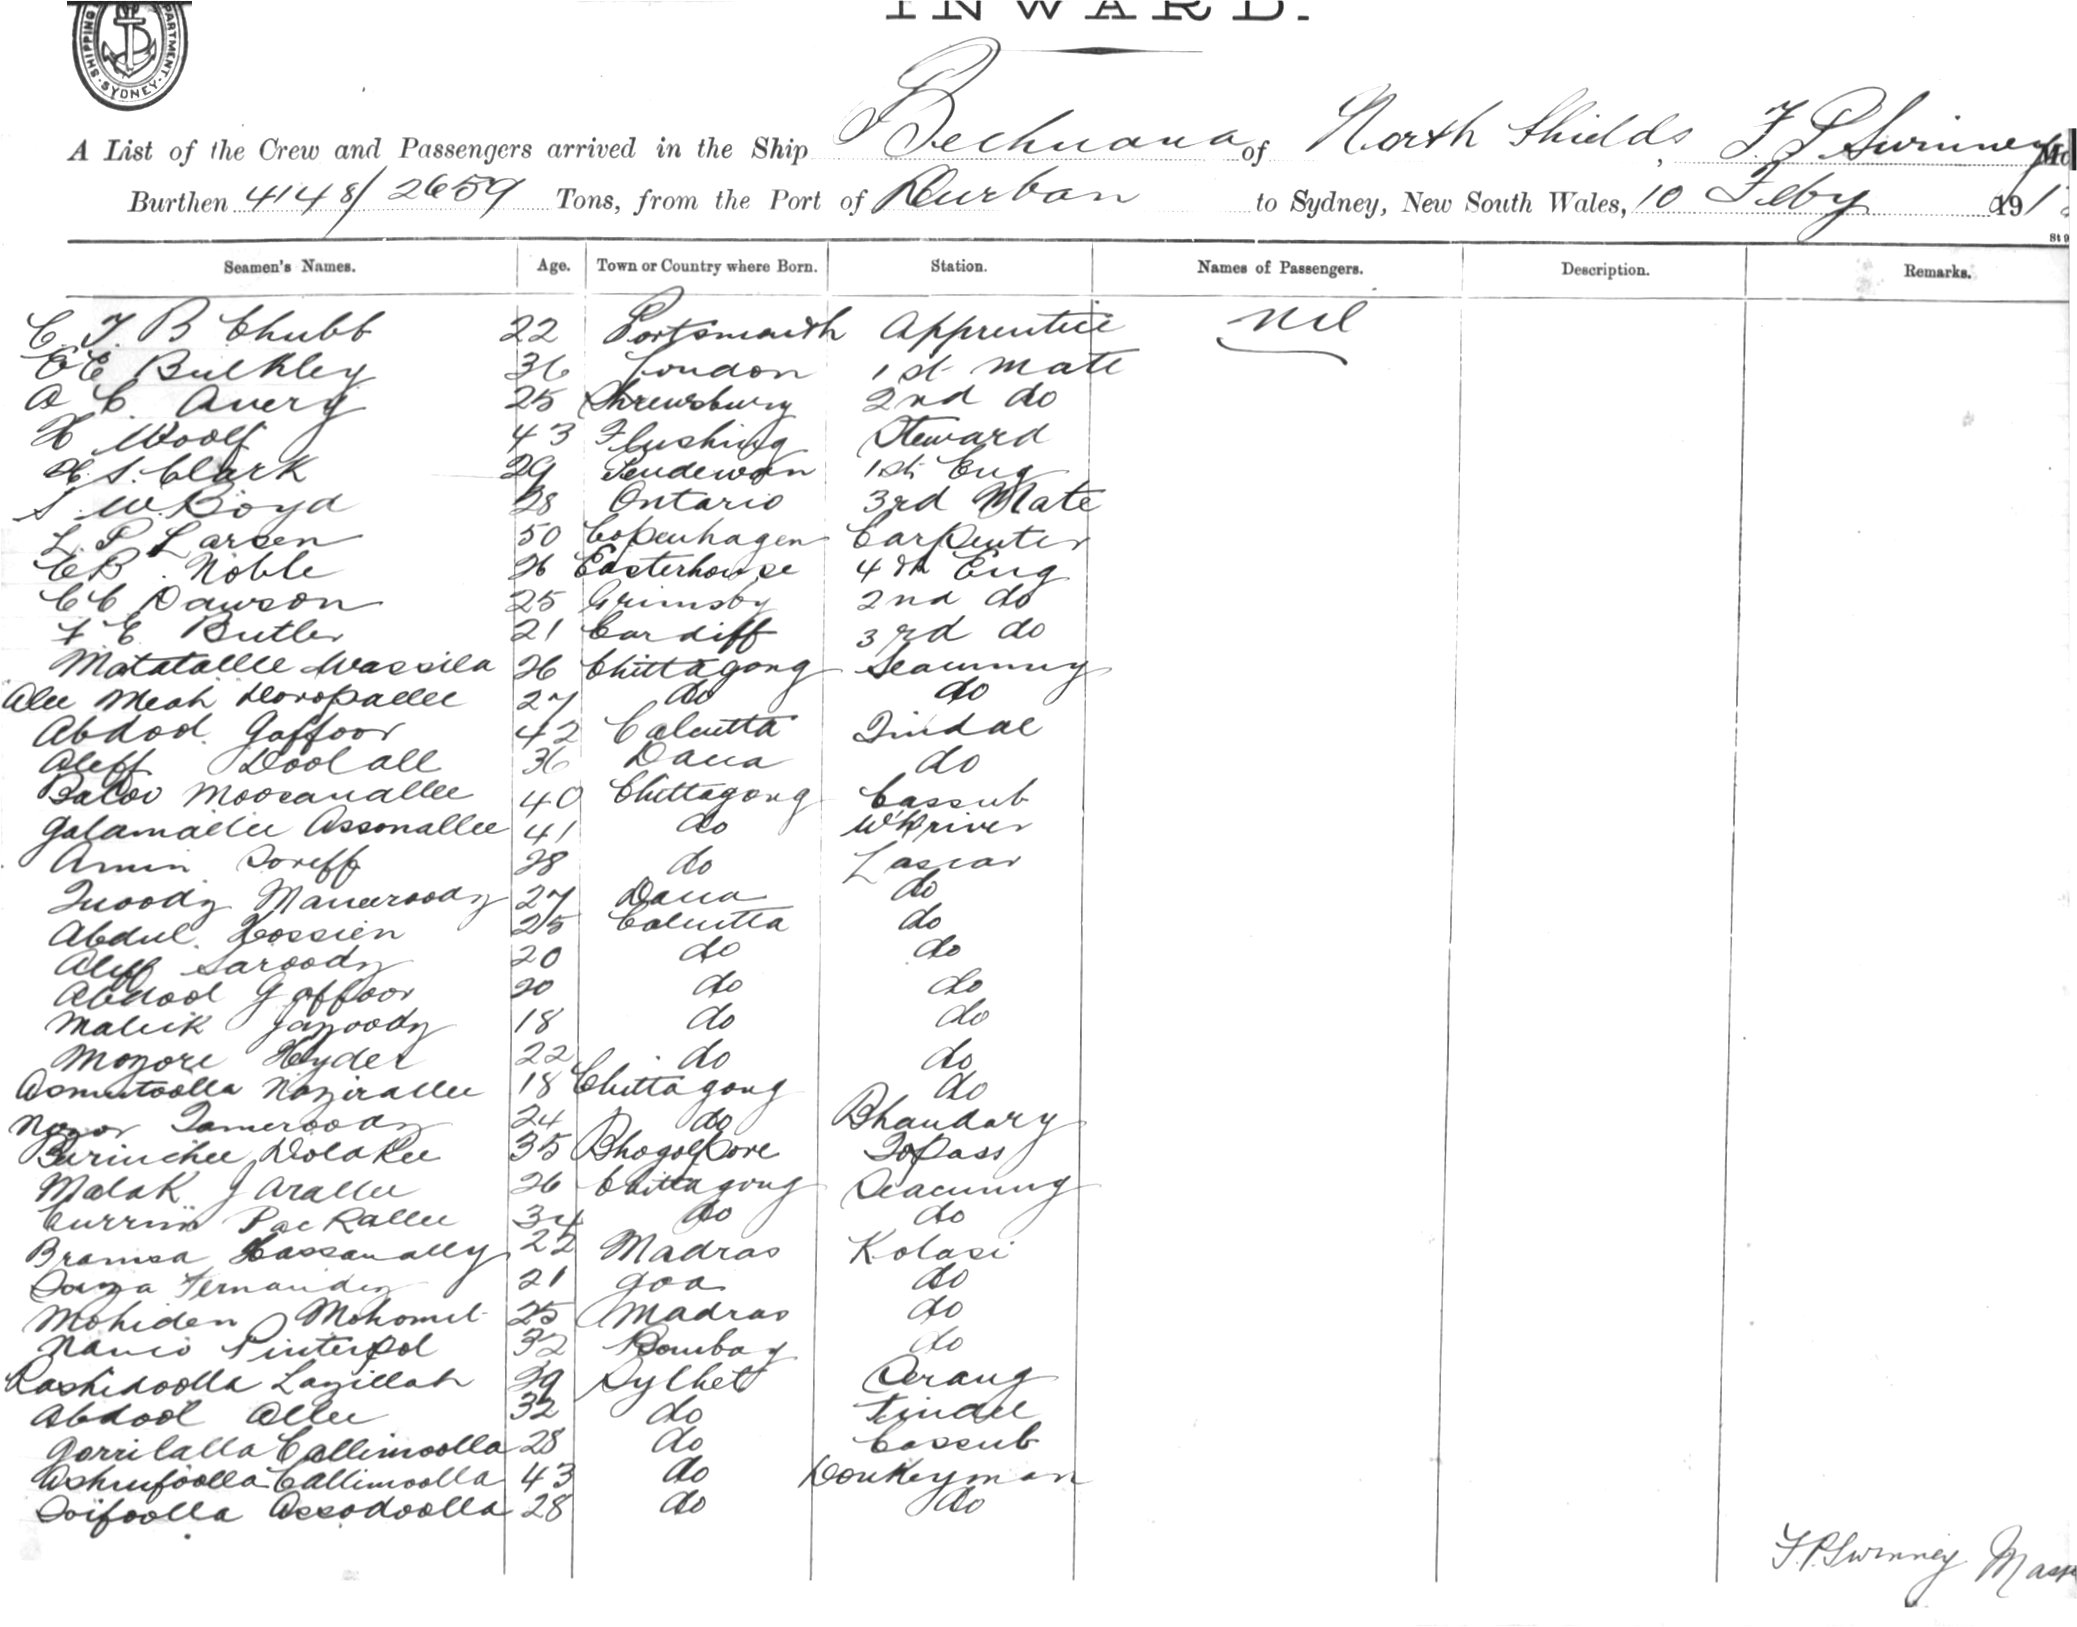 INWARD.
SHIPPING DEPARTMENT SYDNEY
A List of the Crew and Passengers arrived in the Ship Bechuana of North Shields, F P Swinney
Burthen 4148/2659 Tons, from the Port of Durban to Sydney, New South Wales, 10 Feby 191
Seamen's Names. Age. Town or Country where Born. Station. Names of Passengers. Description. Remarks.
C. F. B Chubb 22 Portsmouth Apprentice Nil
E E Bulkley 36 London 1st Mate
A C. Avery 25 Shrewsbury 2nd do
H Woolf 43 Flushing Steward
H S. Clark 29 1st Eng
S. W. Boyd 28 Ontario 3rd Mate
L. P Larsen 50 Copenhagen Carpenter
C B. Noble 26 Easterhouse 4th Eng
C C Dawson 25 Grimsby 2nd do
F E Butler 21 Cardiff 3rd do
Matatallee Wassila 26 Chittagong Seacunny
Alee Meah Doropallee 27 do do
Abdod Gaffoor 42 Calcutta Tindal
Aleff Doolall 36 Dacca do
Baloo Moosanallee 40 Chittagong Cassub
Golamallee Assonallee 41 do W'driver
Amin Soreff 28 do Lascar
Maneeroody 27 Dacca do
Abdul Hossien 25 Calcutta do
Aleff Saroody 20 do do
Abdool Gaffoor 20 do do
Malick Jazoody 18 do do
Mozore Hyder 22 do do
Asmutoolla Nazirallee 18 Chittagong do
Nozor Tameroody 24 do Bhandary
Burinchee Dolakee 35 Bhogolpore Topass
Malak Jarallee 26 Chittagong Seacunny
Currim Packallee 34 do do
Bramsa Hassanally 22 Madras Kolasi
Souza Fernandez 21 Goa do
Mohiden Mohomed 25 Madras do
32 Bombay do
Rashidoolla Lazillah 39 Sylhet Serang
Abdool Allee 32 do Tindal
Gorrilalla Callimoolla 28 do Cassub
Ashrufoolla Callimoolla 43 do Donkeyman
Soifoolla Assodoolla 28 do do
F. P. Swinney Mas